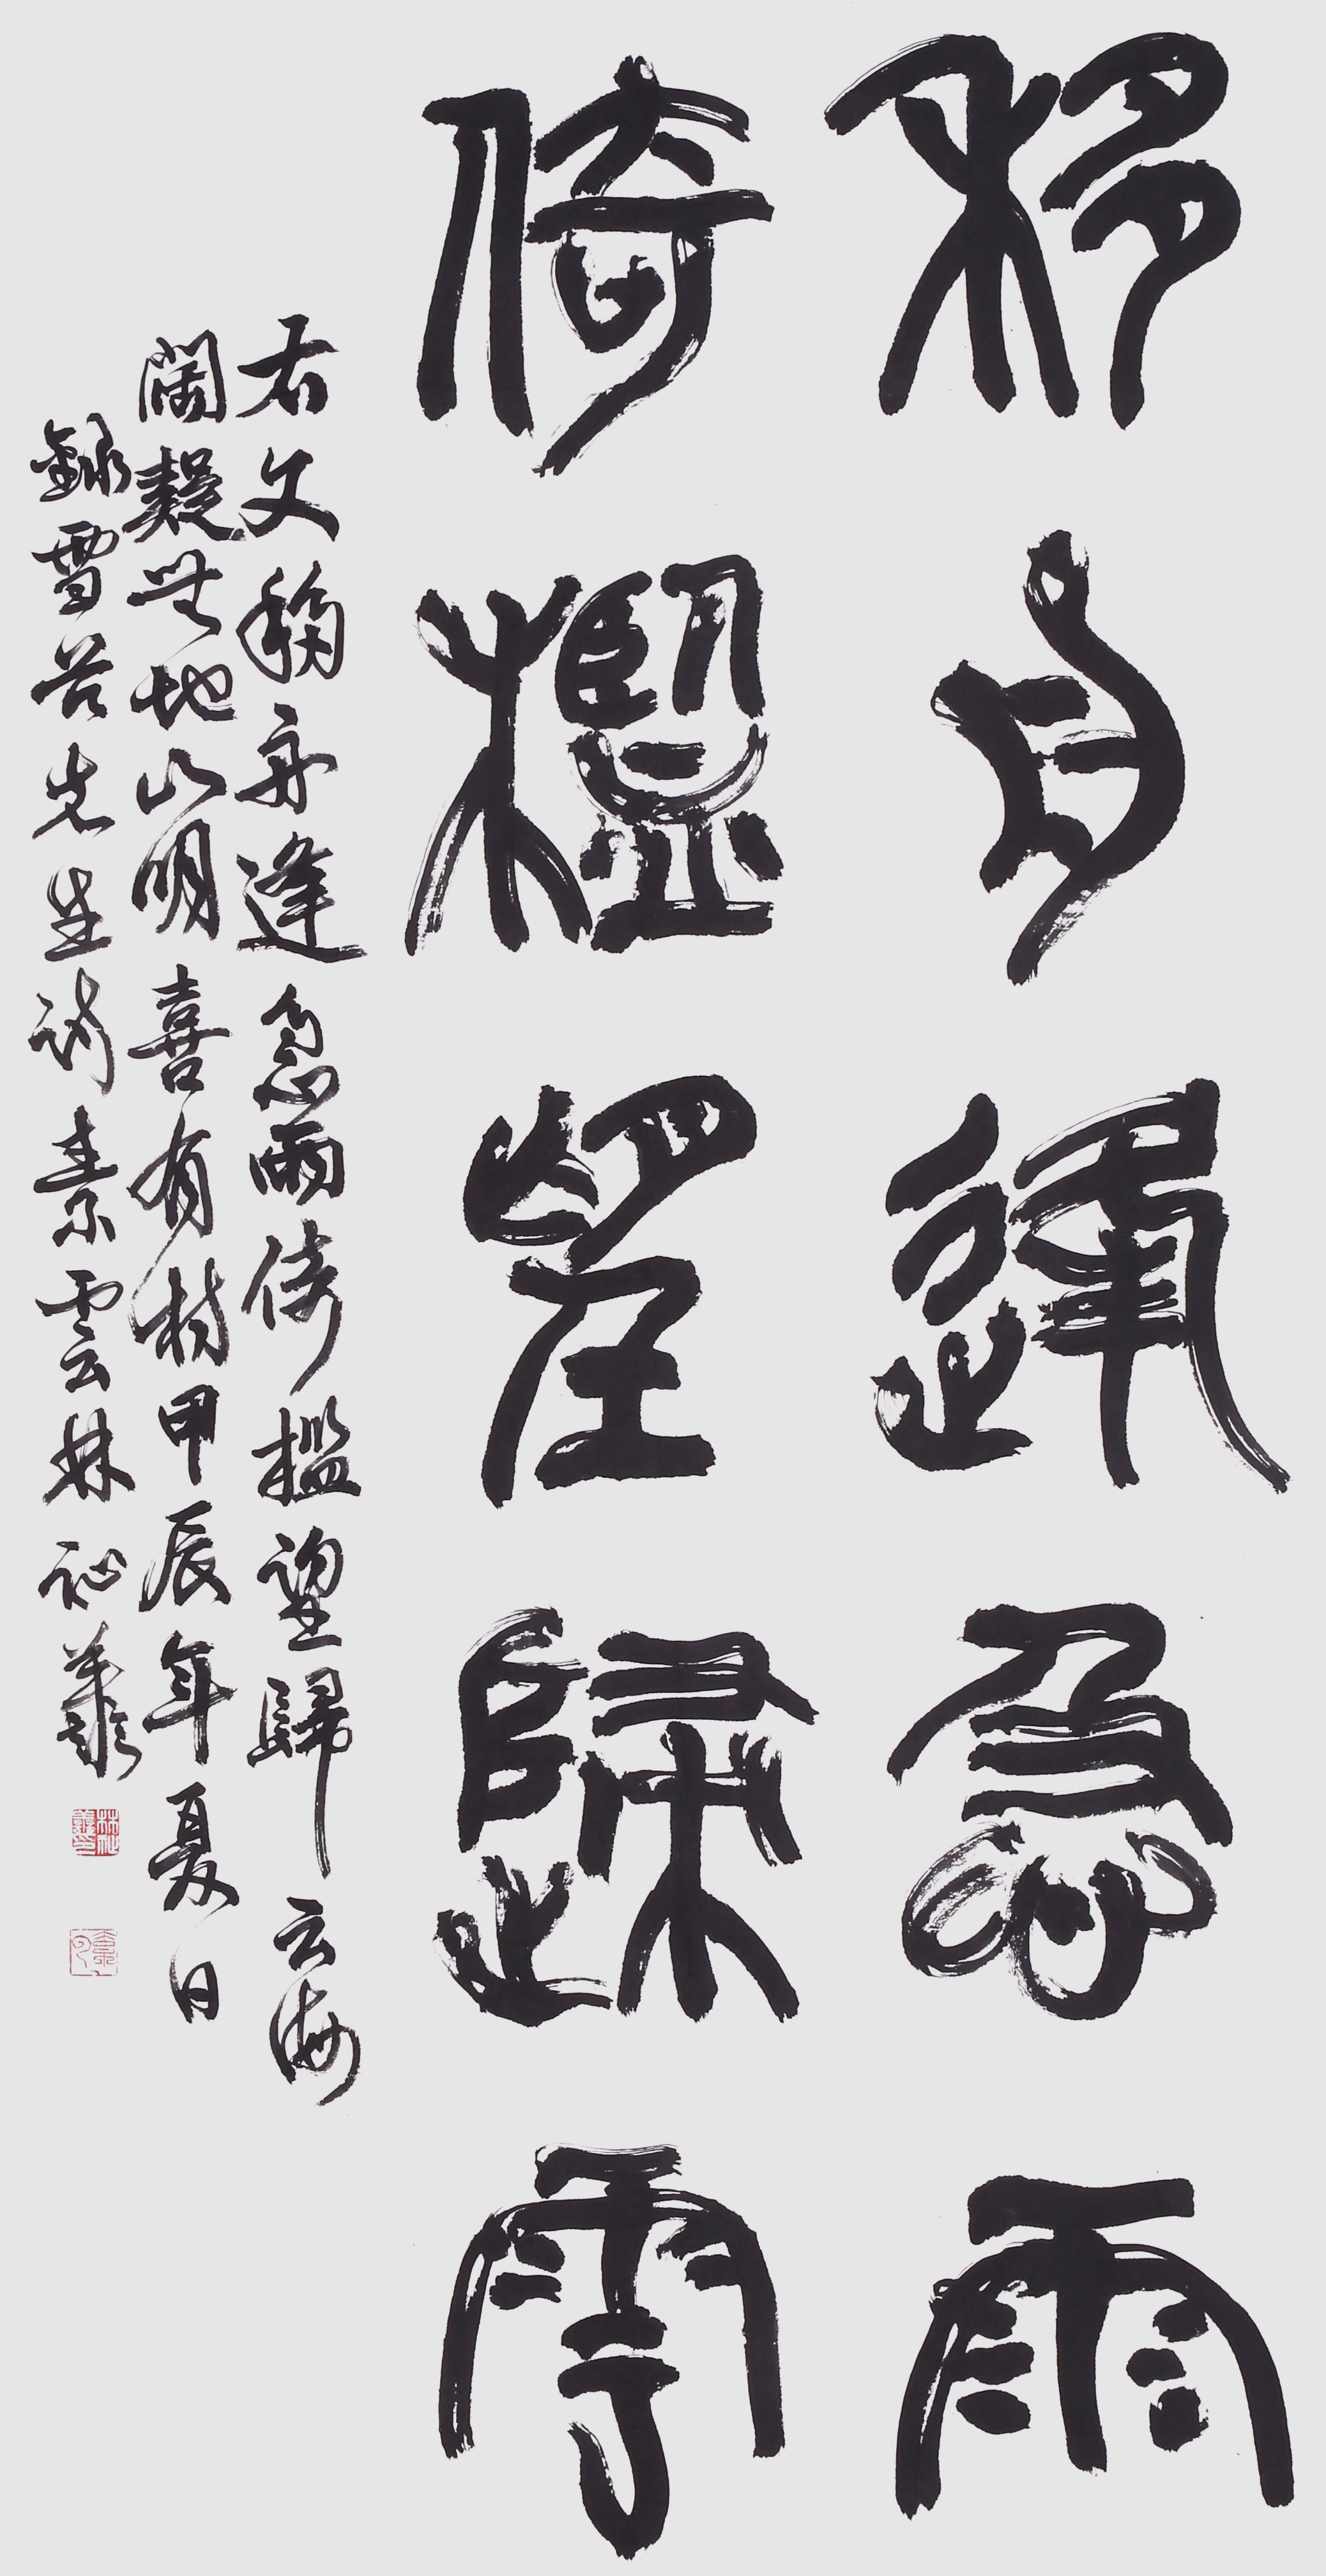 移舟逢急雨
倚檻望歸雲
右文移舟逢急雨倚檻望歸云海
闊疑無地山明喜有村甲辰年夏日
錄雪谷先生詩素雲林祉羲